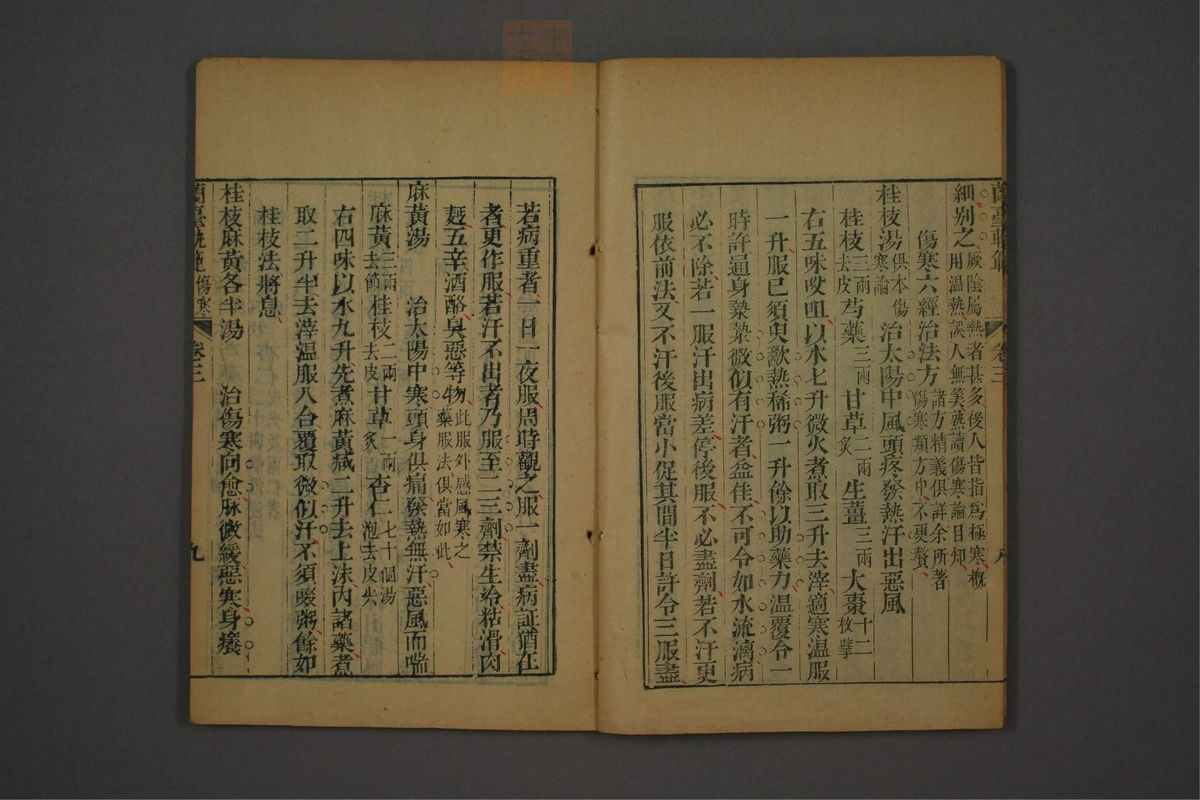 蘭臺軌範 卷三 八
細別之厥陰屬熱者甚多後人皆指爲極寒概用温熱誤人無筭熟讀傷寒論自知
傷寒六經治法方諸方精義俱詳余所著傷寒類方中不更贅
桂枝湯俱本傷寒論 治太陽中風頭疼發熱汗出惡風
桂枝三兩去皮 芍藥三兩 甘草二兩炙 生薑三兩 大棗十二枚擘
右五味㕮咀以水七升微火煮取三升去滓適寒温服
一升服已須臾歠熱稀粥一升餘以助藥力温覆令一
時許遍身漐漐微似有汗者益佳不可令如水流漓病
必不除若一服汗出病差停後服不必盡劑若不汗更
服依前法又不汗後服當小促其間半日許令三服盡
若病重者一日一夜服周時觀之服一劑盡病証猶在
者更作服若汗不出者乃服至二三劑禁生冷粘滑肉
麪五辛酒酪臭惡等物此服外感風寒之藥服法俱當如此
麻黃湯 治太陽中寒頭身俱痛發熱無汗惡風而喘
麻黃三兩去節 桂枝二兩去皮 甘草一兩炙 杏仁七十個湯泡去皮尖
右四味以水九升先煮麻黃減二升去上沫內諸藥煮
取二升半去滓温服八合覆取微似汗不須啜粥餘如
桂枝法將息
桂枝麻黃各半湯 治傷寒向愈脉微緩惡寒身癢
蘭臺軌範 傷寒 卷三 九